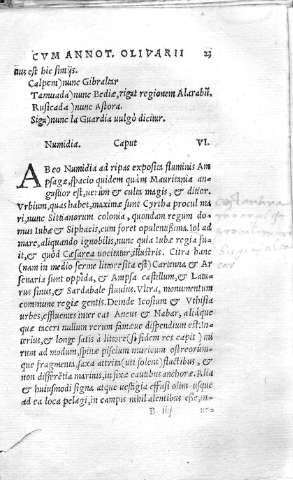 CVM ANNOT. OLIVARII 23
nus est hic simijs.
Calpem) nunc Gibraltar
Tamuada) nunc Bediæ, rigat regionem Alarabũ.
Rusicada) nunc Astora.
Siga) nunc la Guardia vulgò dicitur.
Numidia. Caput VI.
AB eo Numidia ad ripas exposita fluminis Am
psagæ, spacio quidem quàm Mauritania an-
gustior est, uerùm & culta magis, & ditior.
Vrbium, quas habet, maximæ sunt Cyrtha procul ma
ri, nunc Sittianorum colonia, quondam regum do-
mus Iubæ & Siphacis, cum foret opulentissima. Iol ad
mare, aliquando ignobilis, nunc quia Iubæ regia fu-
it, & quòd Cæsarea uocitatur, illustris. Citra hanc
(nam in medio fermè litore sita est) Cartenna & Ar
senaria sunt oppida, & Ampsa castellum, & Latu-
rus sinus, & Sardabale fluuius. Vltra, monumentum
commune regiæ gentis. Deinde Icosium & Vthisia
urbes, effluentes inter eas Aucus & Nabar, aliáque
quæ taceri nullum rerum famæue dispendium est. In-
terius, & longè satis à litore (si fidem res capit) mi
rum ad modum, spinæ piscium muricum ostreorum-
que fragmenta, saxa attrita (uti solent) fluctibus, &
non differẽtia marinis, infixæ cautibus anchoræ. Alia
& huiusmodi signa atque uestigia effusi olim usque
ad ea loca pelagi, in campis nihil alentibus esse, in-
B iiij ue-